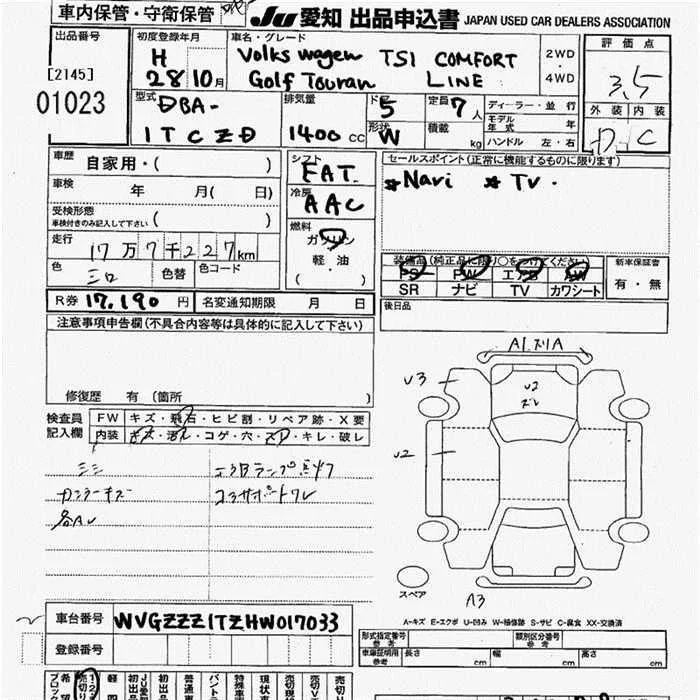 車内保管・守衛保管
JU 愛知 出品申込書 JAPAN USED CAR DEALERS ASSOCIATION
出品番号
[2145]
01023
初度登録年月
H
28年10月
車名・グレード
Volkswagen TSI COMFORT
Golf Touran LINE
2WD
・
4WD
評価点
3.5
外装 内装
D C
型式
DBA-
1TCZD
排気量
1400 cc
ドア
5
形状
W
定員 7人
積載 kg
ディーラー・並行
モデル年式 年
ハンドル 左・右
車歴 自家用・( )
車検 年 月( 日)
受検形態
車検付きのみ記入して下さい ( )
走行 17万7千227km
色 シロ 色替 色コード
シフト
FAT
冷房
AAC
燃料
ガソリン
軽・油
( )
セールスポイント(正常に機能するものに限ります)
*Navi *TV.
装備品(純正品に限り○をつけてください)
PS PW エアB AW
SR ナビ TV カワシート
新車保証書
有・無
後日品
R券 17,190 円 名変通知期限 月 日
注意事項申告欄(不具合内容等は具体的に記入して下さい)
修復歴 有 (箇所 )
検査員
記入欄
FW キズ・飛石・ヒビ割・リペア跡・X要
内装 キズ・汚れ・コゲ・穴・スレ・キレ・破レ
シミ
エアBランプ点灯
各AU
A1.ズリA
U3
U2
U2
A3
スペア
A-キズ E-エクボ U-凹み W-補修跡 S-サビ C-腐食 XX-交換済
車台番号 WVGZZZ1TZHW017033
登録番号
形式指定番号
参考
類別区分番号
参考
車庫証明用
参考
長さ cm 幅 cm 高さ cm